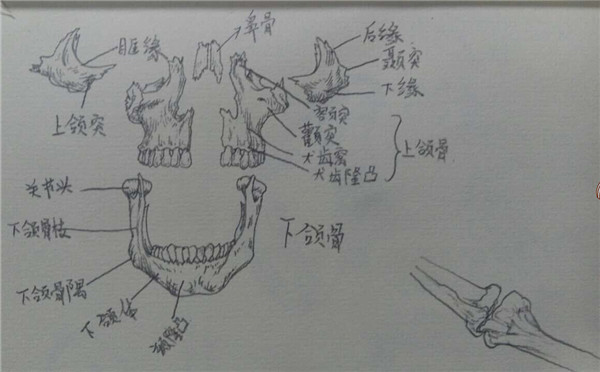 鼻骨
眶缘
后缘
颞突
下缘
上颌突
额突
颧突
犬齿窝
犬齿隆凸
上颌骨
关节头
下颌骨枝
下颌骨
下颌骨隅
下颌体
颏隆凸